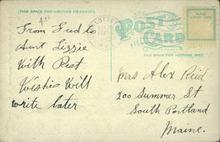 THIS SPACE FOR WRITING MESSAGES
POST CARD
From Fred to
Aunt Lizzie
With Best
Wishes Will
write later
Mrs Alex Reid
200 Summer St
South Portland
Maine.